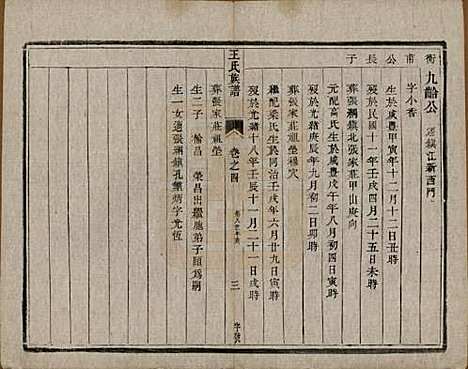 衡甫公長子
九齡公 遷鎮江新西門
字小香
生於咸豐甲寅年十二月十二日丑時
歿於民國十一年壬戌四月二十五日未時
葬張網鎮北張家莊甲山庚向
元配高氏生於咸豐丙戌年八月初四日寅時
歿於光緒庚辰年九月初二日卯時
葬張家莊祖塋穆穴
繼配梁氏生於同治壬戌年六月廿九日寅時
王氏族譜
卷之四
三
歿於光緒十八年壬辰十一月二十一日戌時
葬張家莊祖塋
生二子 榆昌 榮昌出繼胞弟子頤為嗣
生一女適張網鎮孔繁炳字允恆